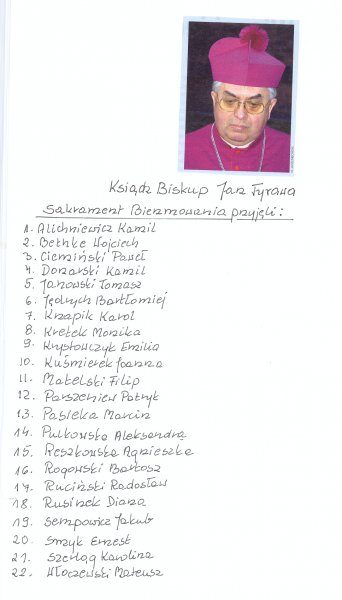 Ksiądz Biskup Jan Tyrawa
Sakrament Bierzmowania przyjęli:
1. Alichniewicz Kamil
2. Bethke Wojciech
3. Ciemiński Paweł
4. Donarski Kamil
5. Janowski Tomasz
6. Jędrych Bartłomiej
7. Knapik Karol
8. Kretek Monika
9. Krystowczyk Emilia
10. Kuśmierek Joanna
11. Matelski Filip
12. Parszeniew Patryk
13. Pasieka Marcin
14. Pułkowska Aleksandra
15. Reszkowska Agnieszka
16. Rogowski Bartosz
17. Ruciński Radosław
18. Rusinek Diana
19. Sempowicz Jakub
20. Smyk Ernest
21. Szeląg Karolina
22. Włoczewski Mateusz